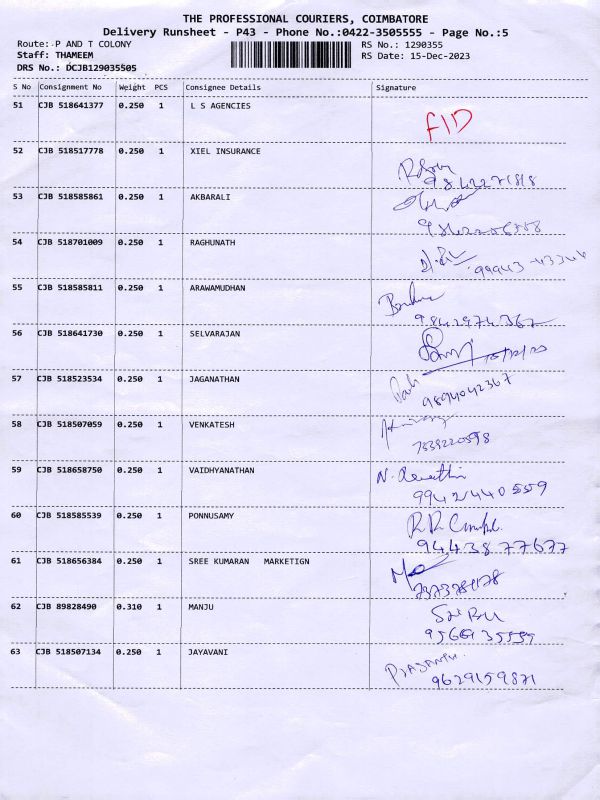 THE PROFESSIONAL COURIERS, COIMBATORE
Delivery Runsheet - P43 - Phone No.:0422-3505555 - Page No.:5
Route: P AND T COLONY RS No.: 1290355
Staff: THAMEEM RS Date: 15-Dec-2023
DRS No.: DCJB129035505
S No Consignment No Weight PCS Consignee Details Signature
51 CJB 518641377 0.250 1 L S AGENCIES
FID
52 CJB 518517778 0.250 1 XIEL INSURANCE
53 CJB 518585861 0.250 1 AKBARALI
54 CJB 518701009 0.250 1 RAGHUNATH
55 CJB 518585811 0.250 1 ARAWAMUDHAN
9842974367
56 CJB 518641730 0.250 1 SELVARAJAN
57 CJB 518523534 0.250 1 JAGANATHAN
9894042367
58 CJB 518507059 0.250 1 VENKATESH
59 CJB 518658750 0.250 1 VAIDHYANATHAN
N. Revathi
9942440559
60 CJB 518585539 0.250 1 PONNUSAMY
9443877677
61 CJB 518656384 0.250 1 SREE KUMARAN MARKETIGN
62 CJB 89828490 0.310 1 MANJU
63 CJB 518507134 0.250 1 JAYAVANI
9629159871